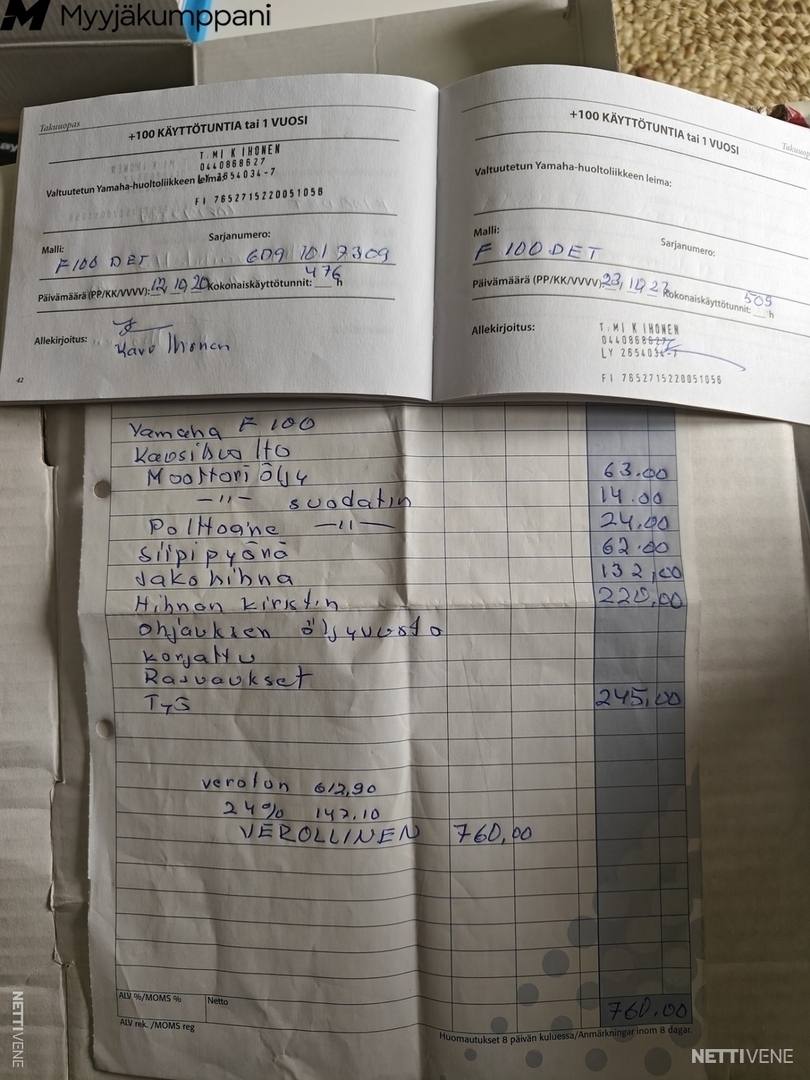 Myyjäkumppani
Takuuopas
+100 KÄYTTÖTUNTIA tai 1 VUOSI
T.MI K IHONEN
0440868627
Valtuutetun Yamaha-huoltoliikkeen leima:
LY 2654034-7
FI 7652715220051056
Malli: F100 DET
Sarjanumero: 6D9 1017309
Päivämäärä (PP/KK/VVVV): 12, 10, 20 Kokonaiskäyttötunnit: 476 h
Allekirjoitus:
Ihonen
42
+100 KÄYTTÖTUNTIA tai 1 VUOSI
Valtuutetun Yamaha-huoltoliikkeen leima:
Malli: F 100 DET
Sarjanumero:
Päivämäärä (PP/KK/VVVV): Kokonaiskäyttötunnit: 509 h
Allekirjoitus:
T.MI K IHONEN
0440868627
LY 2654034-7
FI 7652715220051056
Yamaha F 100
Kausihuolto
Moottoriöljy 63.00
—11— suodatin 14.00
Polttoaine —11— 24,00
Siipipyörä 62.00
Jakohihna 132,00
Hihnan kiristin 220,00
Ohjauksen öljyvuoto
korjattu
Rasvaukset
Työ 245,00
veroton 612,90
24% 147.10
VEROLLINEN 760,00
ALV %/MOMS % Netto
760.00
ALV rek. /MOMS reg
Huomautukset 8 päivän kuluessa/Anmärkningar inom 8 dagar.
NETTIVENE
NETTIVENE